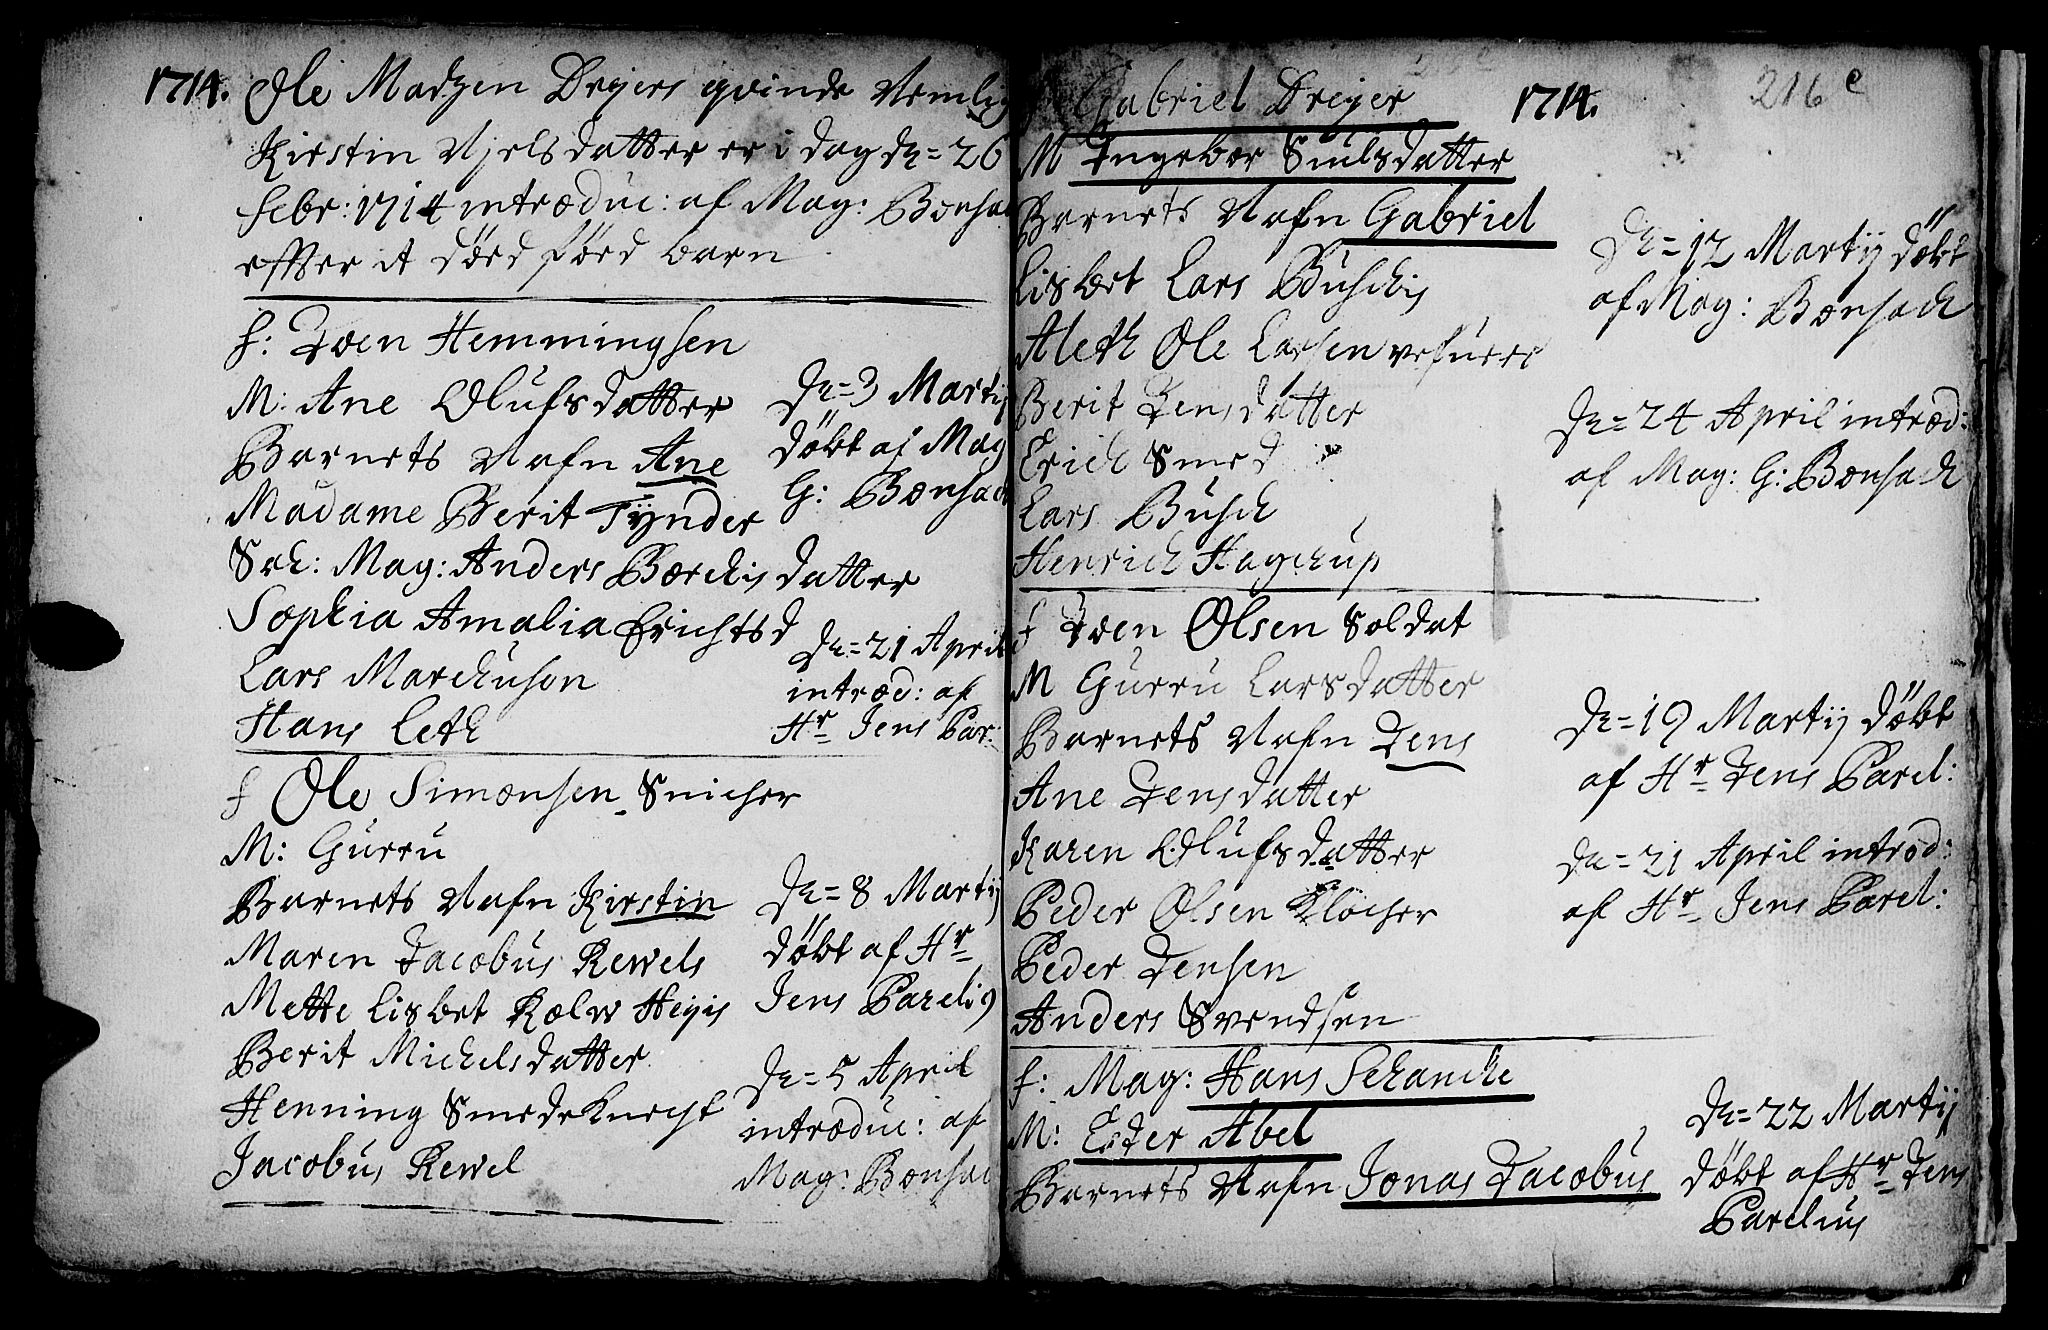 1714. Ole Madzen Drejers qvinde Nemlig
Kirstin Njelsdatter er i dag dn= 26
febr: 1714 introduc: af Mag: Bonsa
effter it döed föed barn
f: Joen Hemmingsen
M: Ane Olufsdatter
Barnets Nafn Ane
Madame Berit Tÿnder
Sch: Mag: Anders Borchis datter
Sophia Amalia Erichtsd
Lars Marchuson
Hans Leth
dn= 3 Martij
döbt af Mag
G: Bonsach
dn= 21 April
introd: af
Hr Jens Par:
f Ole Simonsen Snicher
M: Gurru
Barnets Nafn Kirstin
Maren Jacobus Rewels
Mette Lisbet Rolw Heyis
Berit Michelsdatter
Henning Smedeknecht
Jacobus Rewel
dn= 8 Martij
döbt af Hr
Jens Pareli9
dn= 5 April
introduc: af
Mag: Bonsac
216 e
f Gabriel Dreyer 1714.
M Ingebor Siulsdatter
Barnets Nafn Gabriel
Lisbet Lars Buschis
Aleth Ole Larsen
Berit Jensdatter
Erich Smed
Lars Busch
Henrich Hagerup
dn= 12 Martij döbt
af Mag: Bonsach
dn= 24 April introd:
af Mag: G: Bonsach
f Joen Olsen Soldat
M Gurru Larsdatter
Barnets Nafn Jens
Ane Jensdatter
Karen Olufsdatter
Peder Olsen Klocher
Peder Jensen
Anders Svendsen
dn= 19 Martij döbt
af Hr Jens Parel:
dn= 21 April introd:
af Hr Jens Parel:
f: Mag: Hans Schancke
M: Ester Abel
Barnets Nafn Jonas Jacobus
dn= 22 Martij
döbt af Hr Jens
Parelius